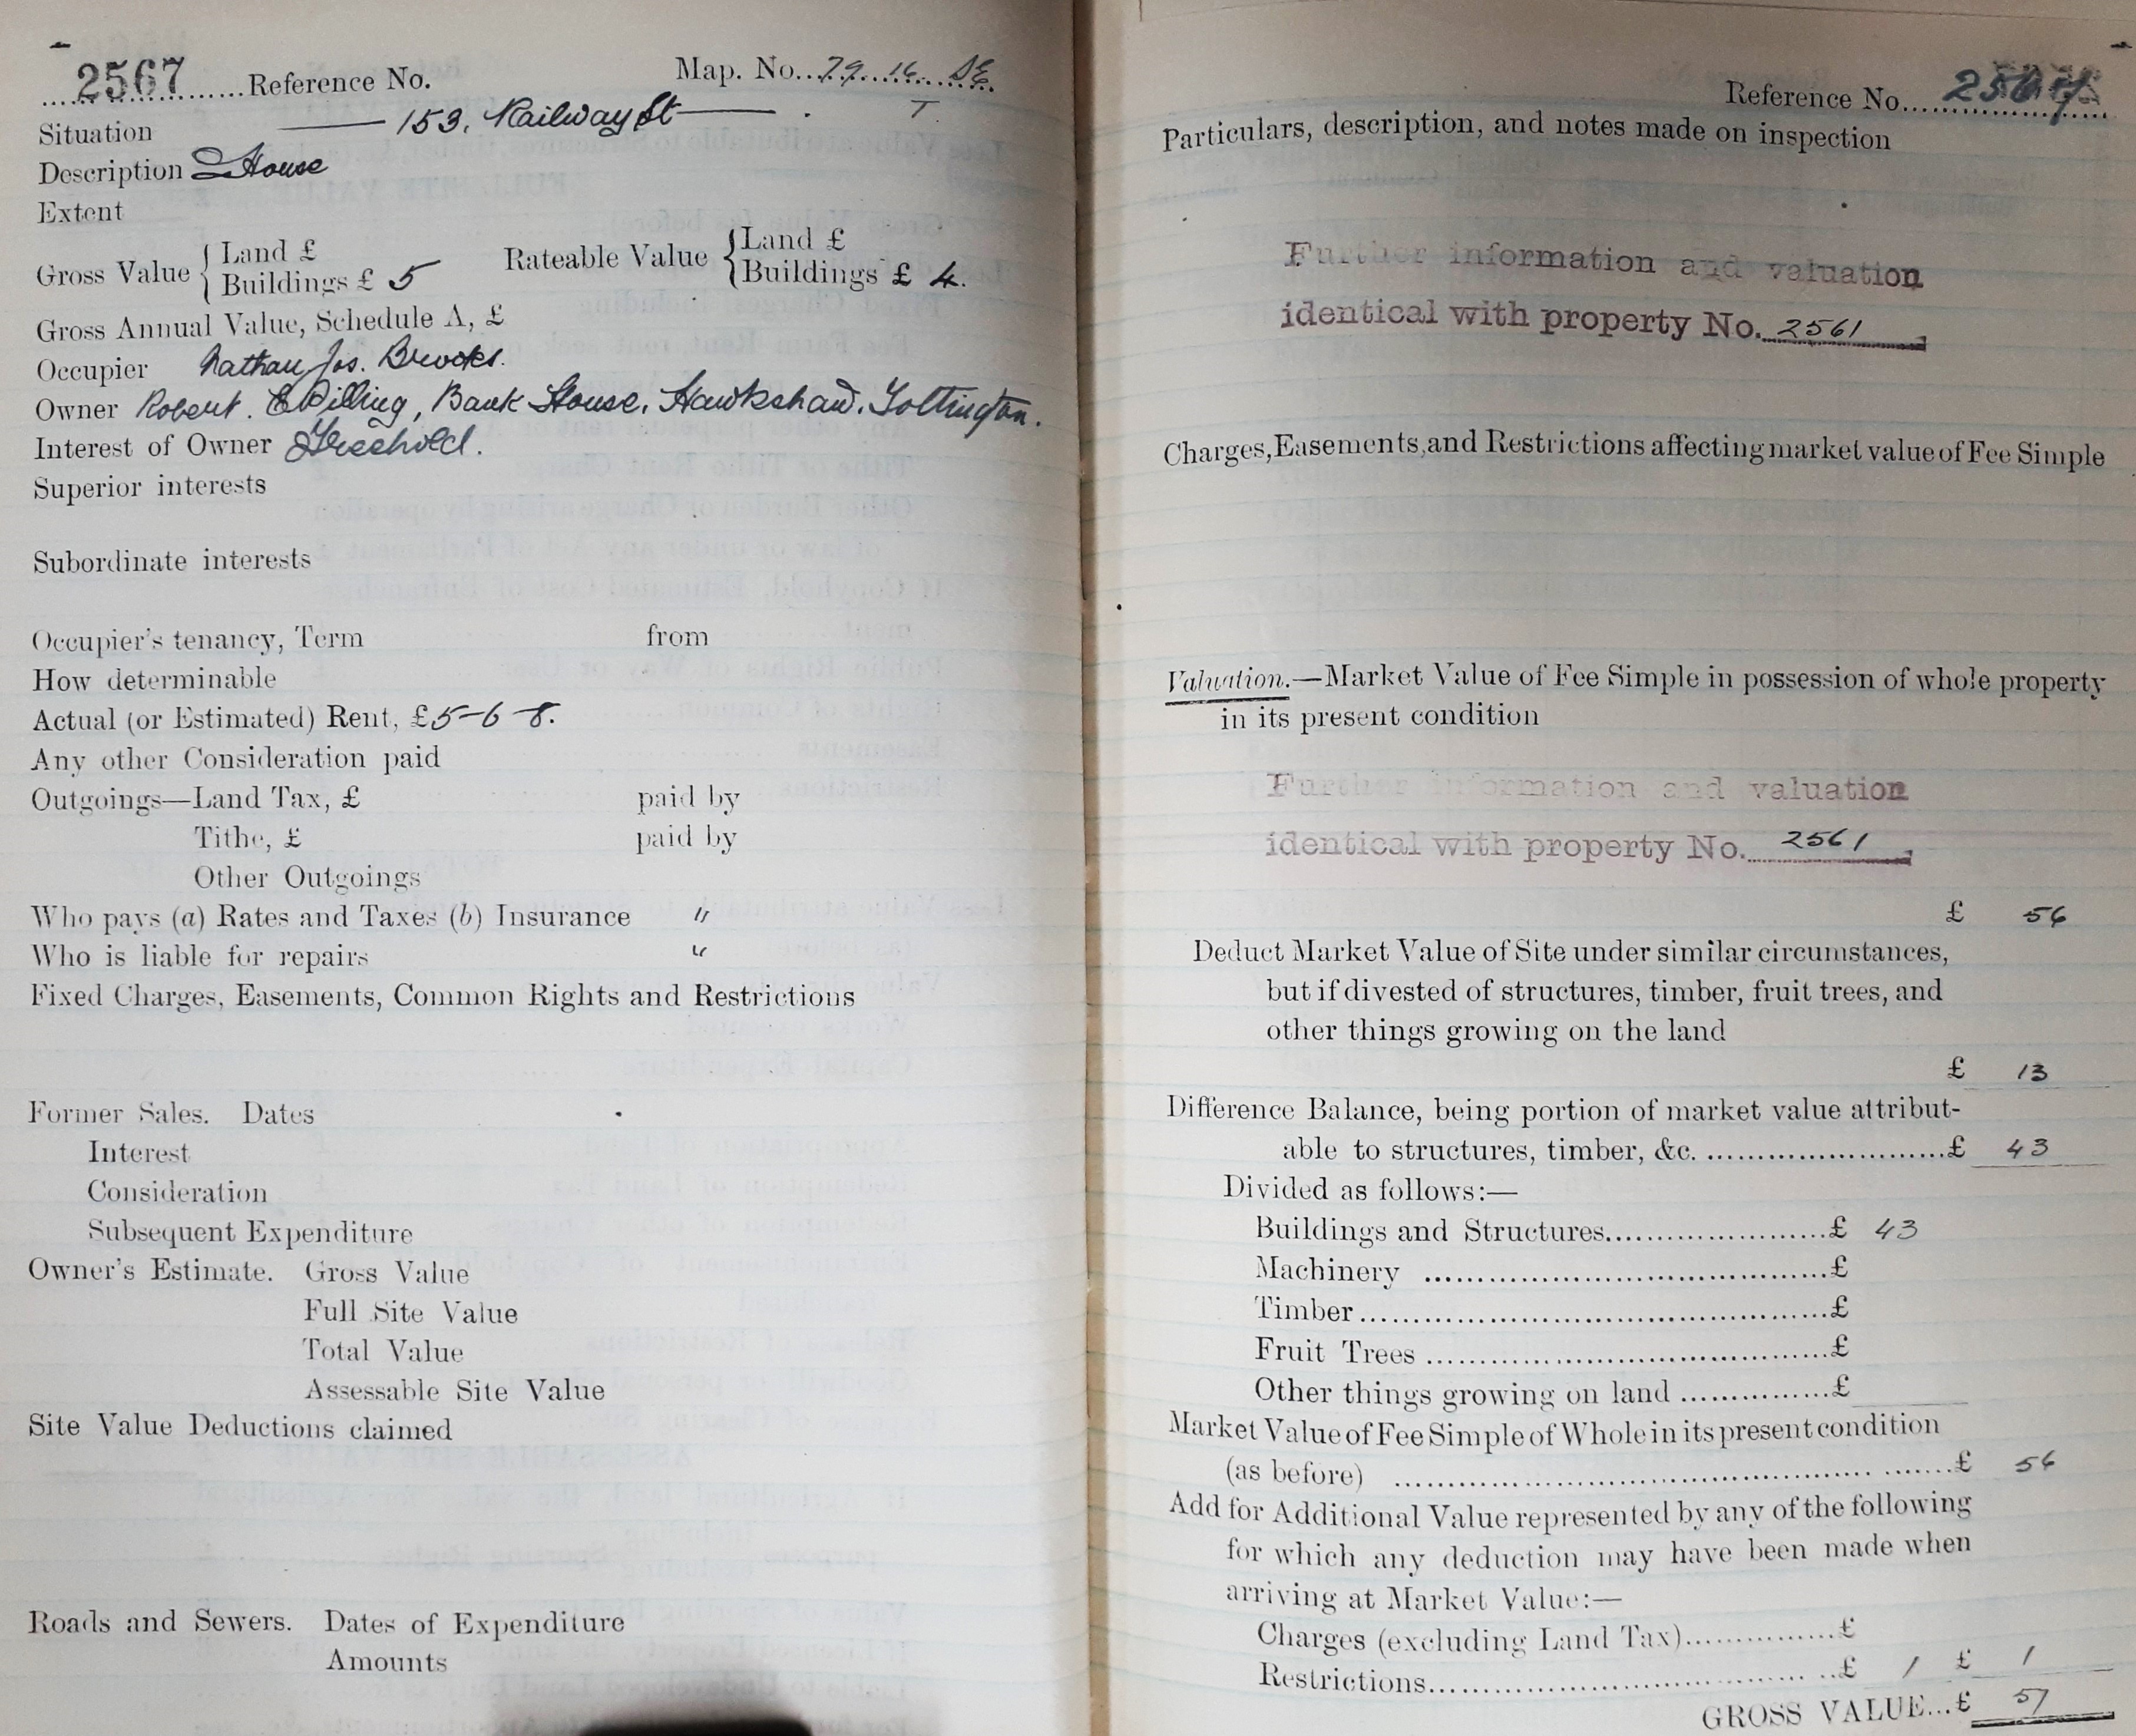 2567 Reference No. Map. No. 79. 16. SE
T
Situation 153, Railway St
Description House
Extent
Gross Value { Land £
Buildings £ 5
Rateable Value { Land £
Buildings £ 4.
Gross Annual Value, Schedule A, £
Occupier Nathan Jos. Brooks.
Owner Robert. E Pilling, Bank House, Hawkshaw, Tottington.
Interest of Owner Freehold.
Superior interests
Subordinate interests
Occupier's tenancy, Term from
How determinable
Actual (or Estimated) Rent, £5-6-8.
Any other Consideration paid
Outgoings—Land Tax, £ paid by
Tithe, £ paid by
Other Outgoings
Who pays (a) Rates and Taxes (b) Insurance "
Who is liable for repairs "
Fixed Charges, Easements, Common Rights and Restrictions
Former Sales. Dates
Interest
Consideration
Subsequent Expenditure
Owner's Estimate. Gross Value
Full Site Value
Total Value
Assessable Site Value
Site Value Deductions claimed
Roads and Sewers. Dates of Expenditure
Amounts
Reference No. 2567
Particulars, description, and notes made on inspection
Further information and valuation
identical with property No. 2561
Charges, Easements, and Restrictions affecting market value of Fee Simple
Valuation.—Market Value of Fee Simple in possession of whole property
in its present condition
Further information and valuation
identical with property No. 2561
£ 56
Deduct Market Value of Site under similar circumstances,
but if divested of structures, timber, fruit trees, and
other things growing on the land
£ 13
Difference Balance, being portion of market value attribut-
able to structures, timber, &c. £ 43
Divided as follows:—
Buildings and Structures £ 43
Machinery £
Timber £
Fruit Trees £
Other things growing on land £
Market Value of Fee Simple of Whole in its present condition
(as before) £ 56
Add for Additional Value represented by any of the following
for which any deduction may have been made when
arriving at Market Value:—
Charges (excluding Land Tax) £
Restrictions £ 1 £ 1
GROSS VALUE...£ 57